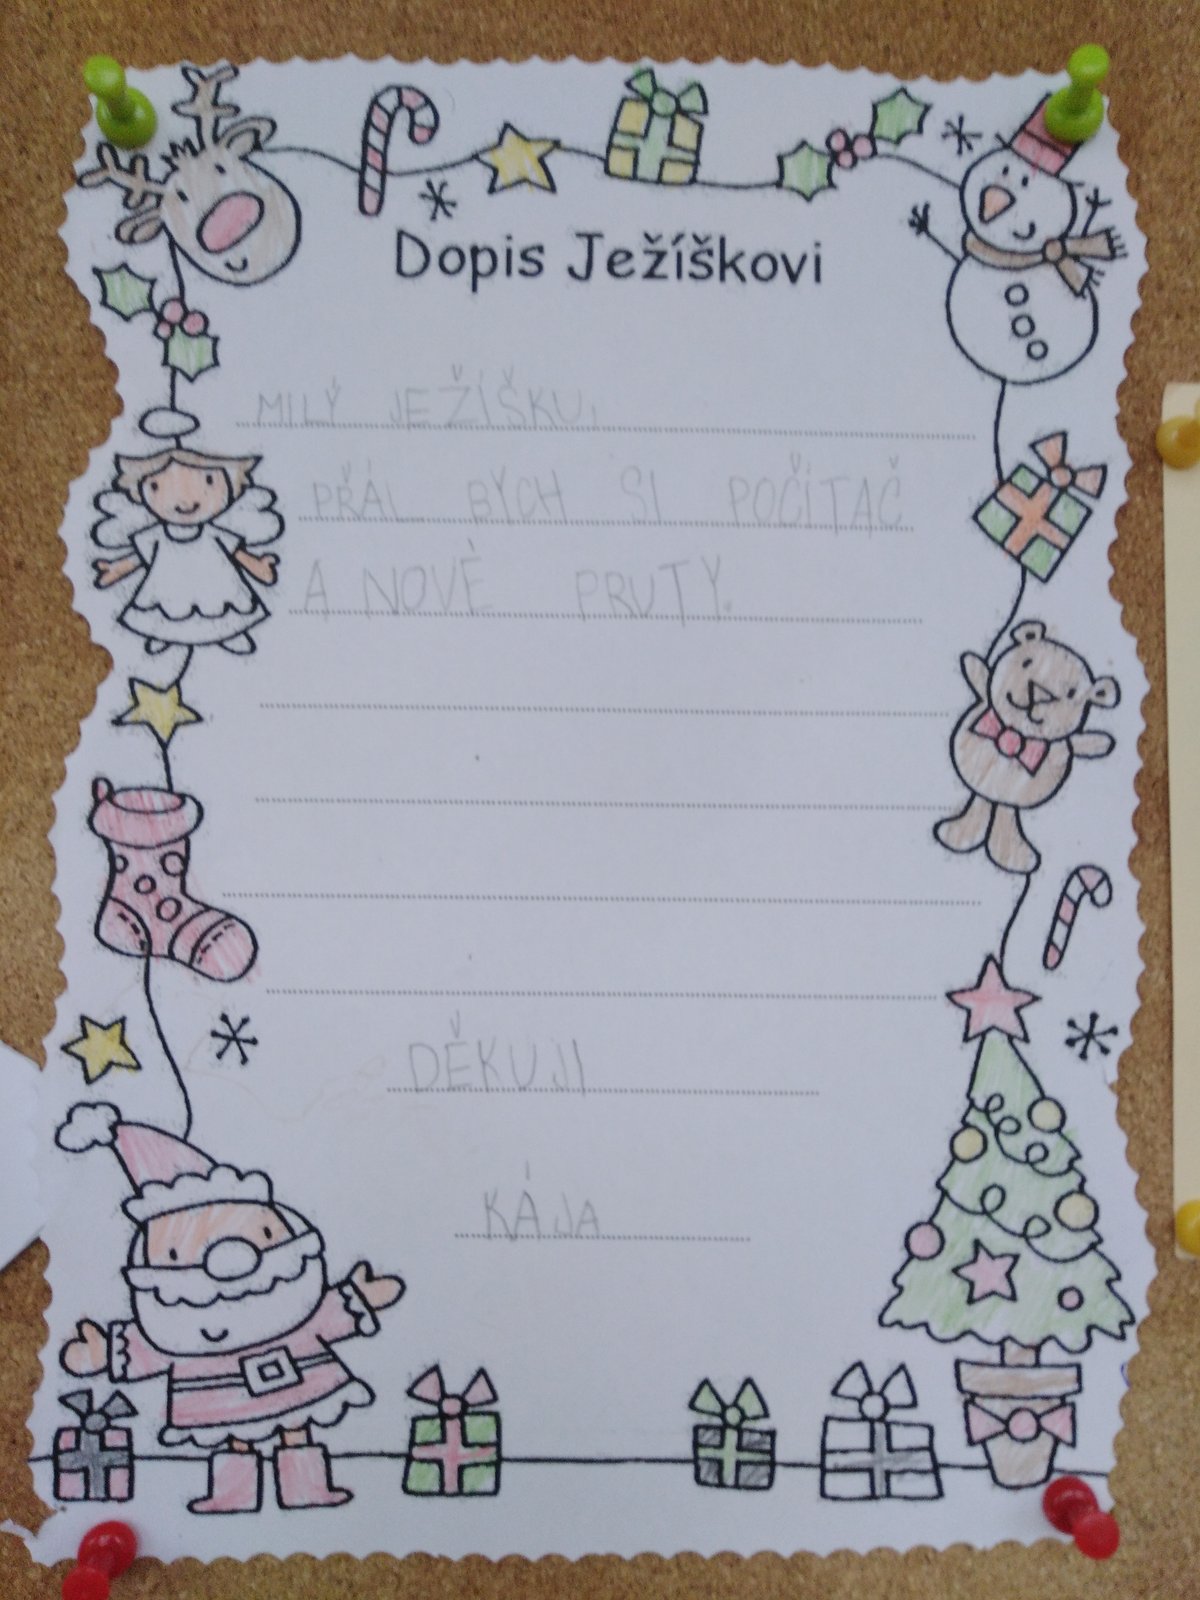 Dopis Ježíškovi
MILÝ JEŽÍŠKU,
PŘÁL BYCH SI POČÍTAČ
A NOVÉ PRUTY.
DĚKUJI
KÁJA